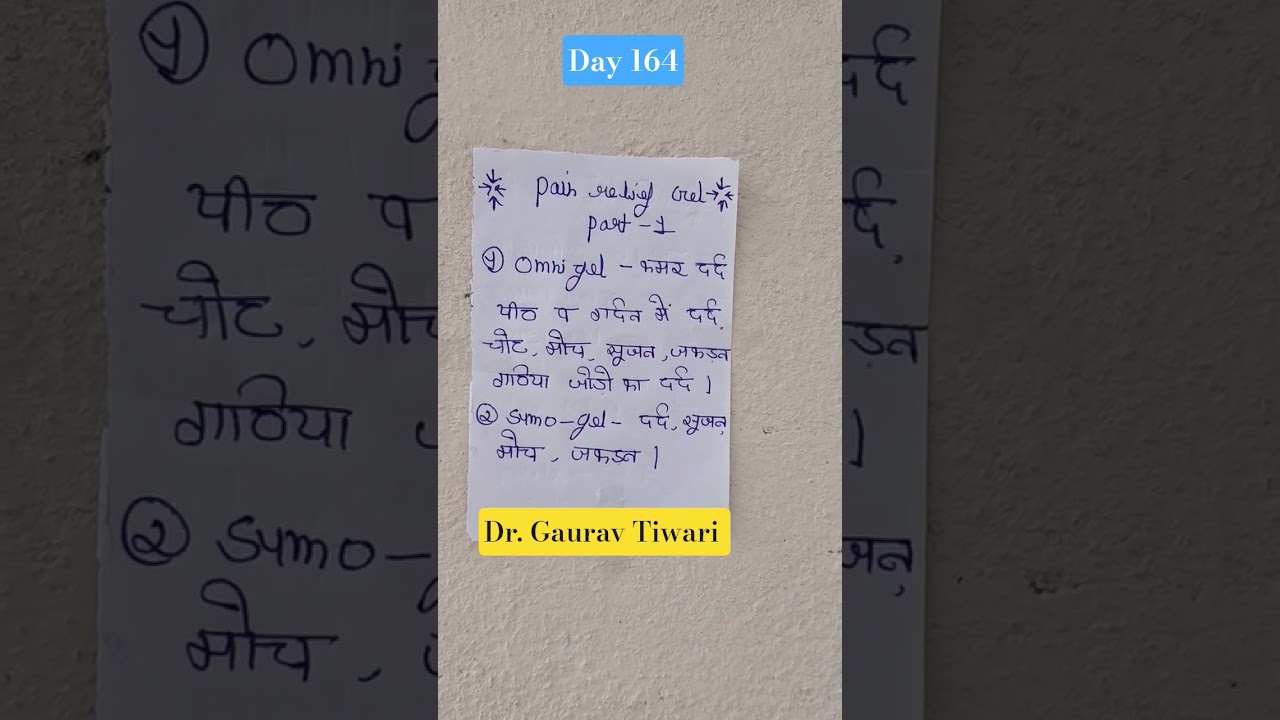 Day 164
Pain relief Gel
part - 1
१ Omni gel - कमर दर्द
पीठ व गर्दन में दर्द,
चोट, मोच, सूजन, जकड़न
गठिया जोड़ो का दर्द ।
२ Sumo-gel - दर्द, सूजन,
मोच, जकड़न ।
Dr. Gaurav Tiwari